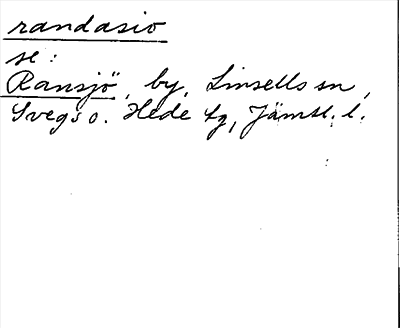 randasio
se:
Ransjö, by, Linsells sn,
Svegs o. Hede tg, Jämtl. l.